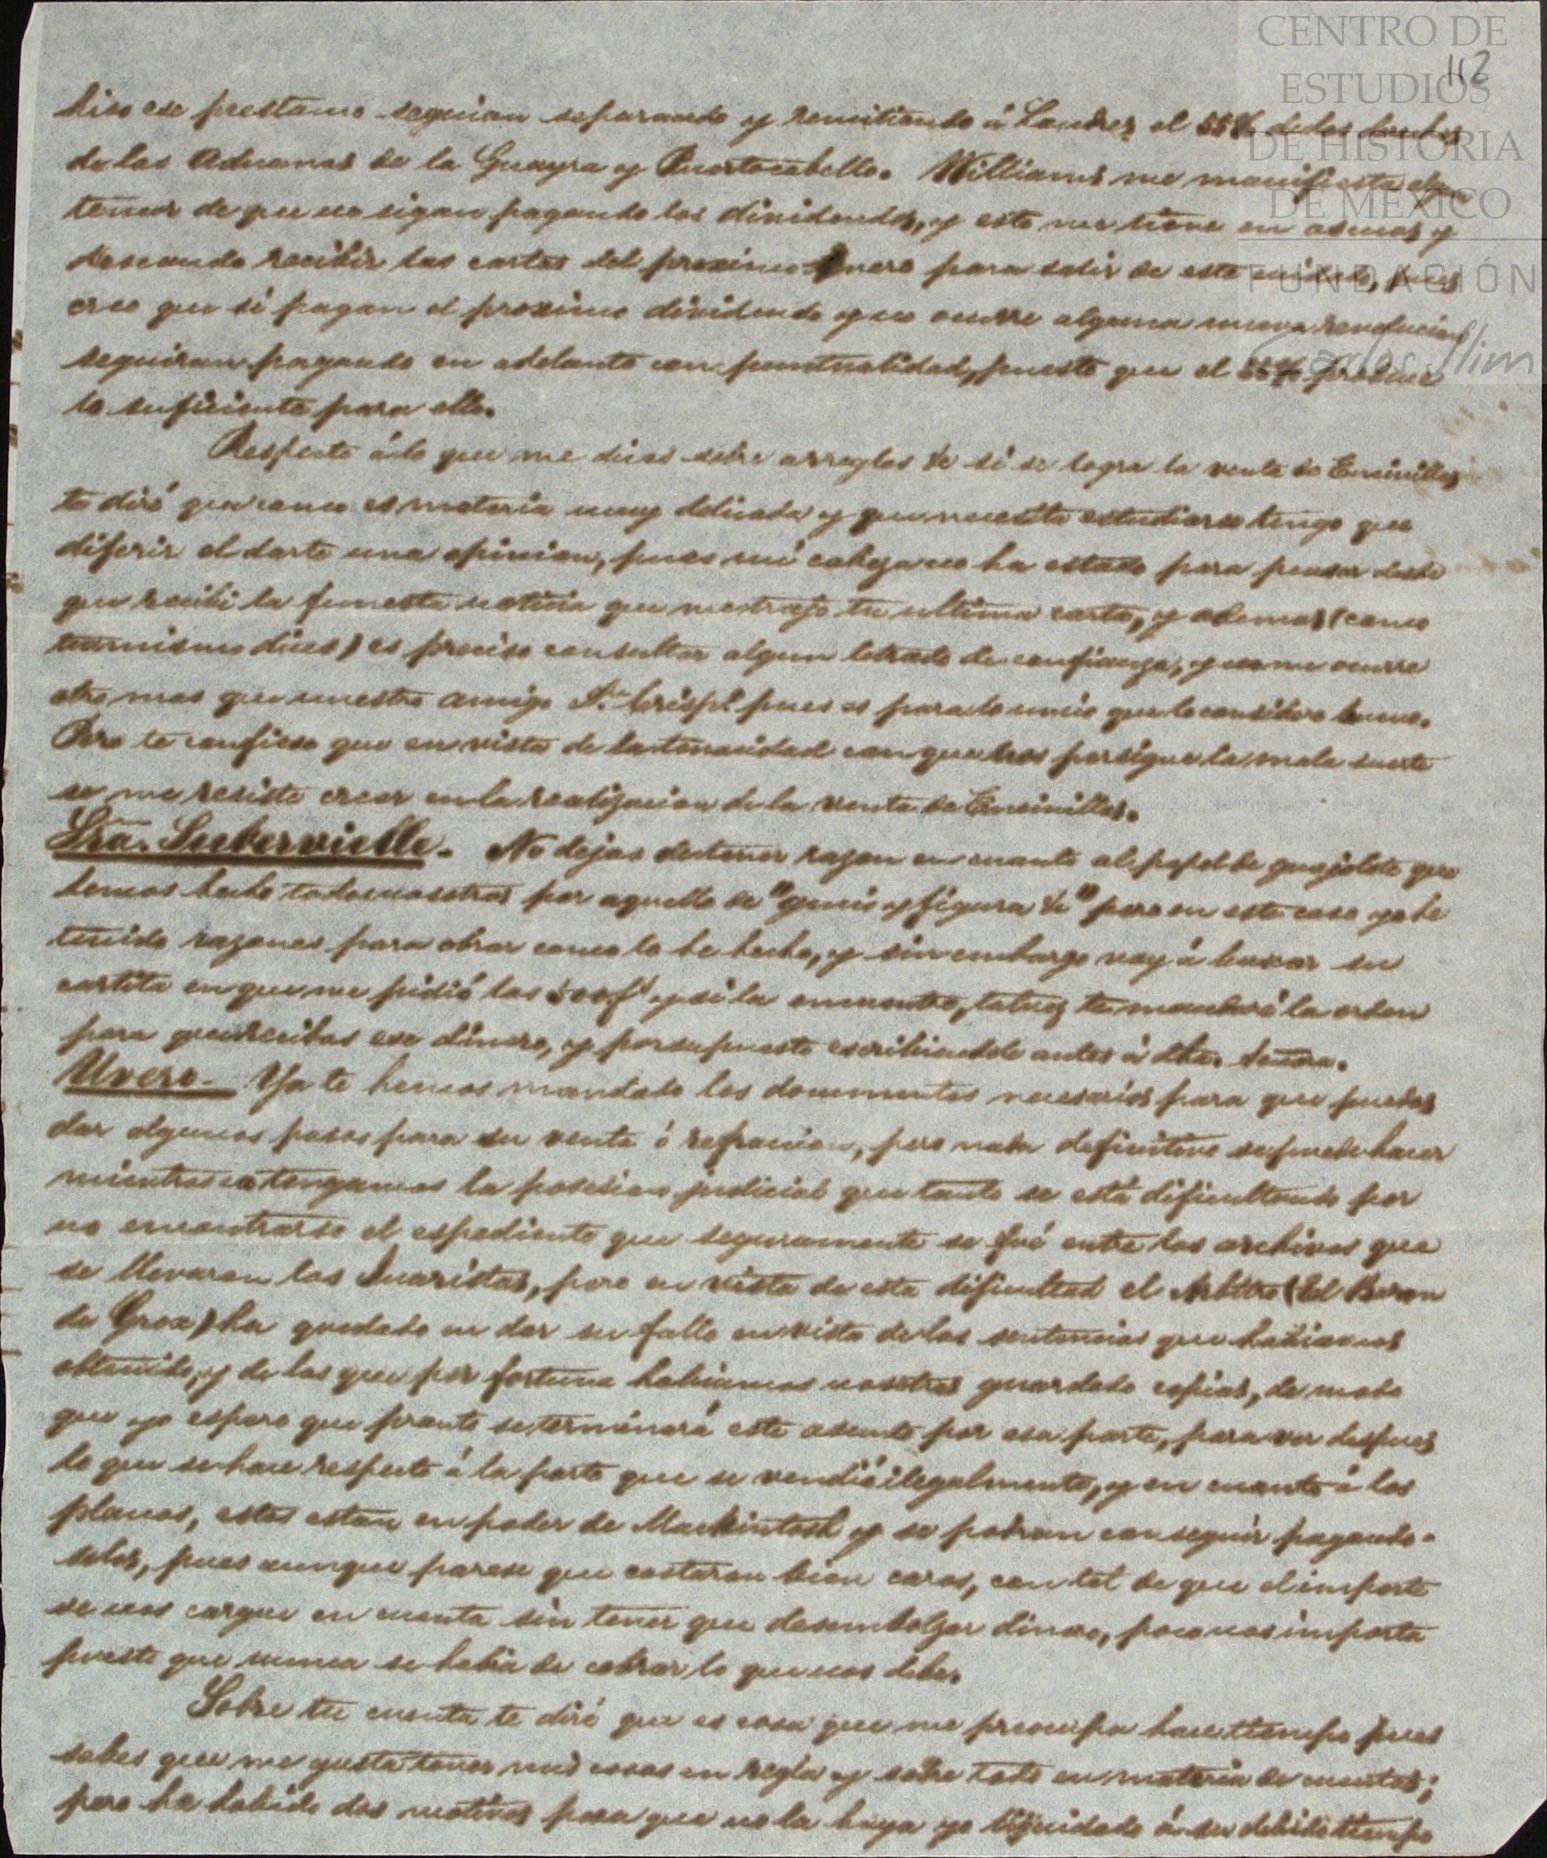 CENTRO DE
ESTUDIOS
DE HISTORIA
DE MÉXICO
FUNDACIÓN
Carlos Slim
112
hizo ese prestamo seguian separando y remitiendo á Londres el 55% de los
de las Aduanas de la Guayra y Puertocabello. Williams me manifiesta algun
temor de que no sigan pagando los dividendos, y esto me tiene en ascuas y
deseando recibir las cartas del proximo Enero para salir de este cuidado, pues
creo que si pagan el proximo dividendo y no ocurre alguna nueva revolucion
seguiran pagando en adelante con puntualidad, puesto que el 55% produce
lo suficiente para ello.
Respecto á lo que me dices sobre arreglos &c si se logra la venta de Encinillas
te diré que como es materia muy delicada y que necesita estudiarse tengo que
diferir el darte una opinion, pues mi cabeza no ha estado para pensar desde
que recibi la funesta noticia que nos trajo tu ultima carta, y ademas (como
tu mismo dices) es preciso consultar algun letrado de confianza, y no me ocurre
otro mas que nuestro amigo Dn. Crispo. pues es para lo unico que lo considero bueno.
Pero te confieso que en vista de la tenacidad con que nos persigue la mala suerte
se me resiste creer en la realizacion de la venta de Encinillas.
Sra. Subervielle. No dejas de tener razon en cuanto al papel de guajolote que
hemos hecho todos nosotros por aquello de "genio y figura &c" pero en este caso yo he
tenido razones para obrar como lo he hecho, y sin embargo voy á buscar su
cartita en que me pidió los 500f. y si la encuentro, talvez te mandaré la orden
para que recibas ese dinero, y por supuesto escribiendole antes á dha. Señora.
Uvero. Ya te hemos mandado los documentos necesarios para que puedas
dar algunos pasos para su venta ó refaccion, pero nada definitivo se puede hacer
mientras no tengamos la posesion judicial que tanto se está dificultando por
no encontrarse el espediente que seguramente se fué entre los archivos que
se llevaron los Juaristas, pero en vista de esta dificultad el Arbitro (el Baron
de Grox) ha quedado en dar su fallo en vista de las sentencias que habiamos
obtenido, y de las que por fortuna habiamos nosotros guardado copias, de modo
que yo espero que pronto se terminará este asunto por esa parte, para ver despues
lo que se hace respecto á la parte que se vendió ilegalmente, y en cuanto á los
planos, estos estan en poder de Mackintosh y se podran conseguir pagando-
selos, pues aunque parece que costaron bien caros, con tal de que el importe
se nos cargue en cuenta sin tener que desembolzar dinero, poco nos importa
puesto que nunca se habia de cobrar lo que nos debe.
Sobre tu cuenta te diré que es cosa que me preocupa hace tiempo pues
sabes que me gusta tener mis cosas en regla y sobre todo en materia de cuentas;
pero ha habido dos motivos para que no la haya yo liquidado á su debido tiempo